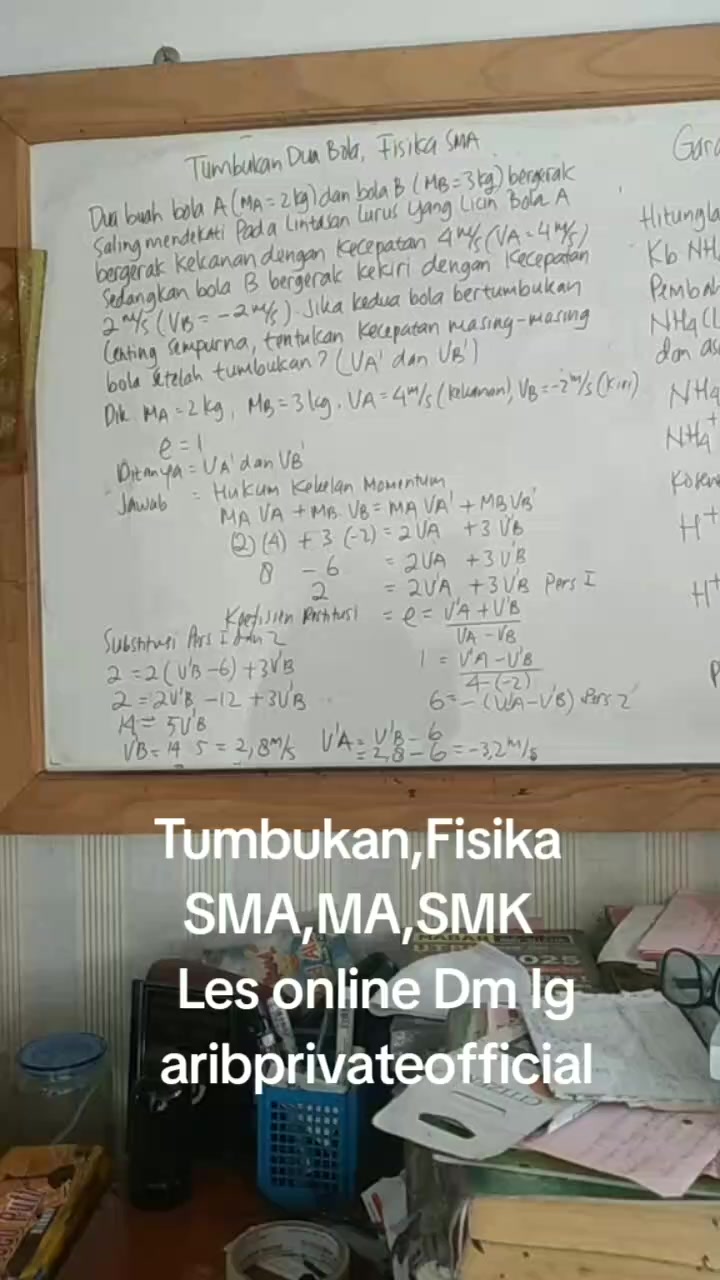 Tumbukan Dua Bola, Fisika SMA
Dua buah bola A (MA = 2kg) dan bola B (MB = 3kg) bergerak
Saling mendekati Pada Lintasan Lurus yang Licin Bola A
bergerak Kekanan dengan Kecepatan 4 m/s (VA = 4 m/s)
Sedangkan bola B bergerak kekiri dengan Kecepatan
2 m/s (VB = -2 m/s). Jika kedua bola bertumbukan
Lenting Sempurna, tentukan Kecepatan masing-masing
bola setelah tumbukan? (VA' dan VB')
Dik MA = 2 kg, MB = 3 kg. VA = 4 m/s (kekanan), VB = -2 m/s (Kiri)
e = 1
Ditanya = VA' dan VB'
Jawab = Hukum Kekelan Momentum
MA VA + MB VB = MA VA' + MB VB'
(2) (4) + 3 (-2) = 2 VA + 3 V'B
8 - 6 = 2VA + 3V'B
2 = 2V'A + 3V'B Pers I
Koefisien Restitusi = e = V'A + V'B
VA - VB
1 = V'A - V'B
4 - (-2)
6 = - (V'A - V'B) Pers 2
Substitusi Pers I dan 2
2 = 2 (V'B - 6) + 3V'B
2 = 2V'B - 12 + 3V'B
14 = 5V'B
VB = 14 5 = 2,8 m/s
V'A = V'B - 6
= 2,8 - 6 = -3,2 m/s
Gara
Kb NH
Pembah
NH4CL
dan as
NH4
NH4+
H+
H+
2025
Tumbukan,Fisika
SMA,MA,SMK
Les online Dm Ig
aribprivateofficial